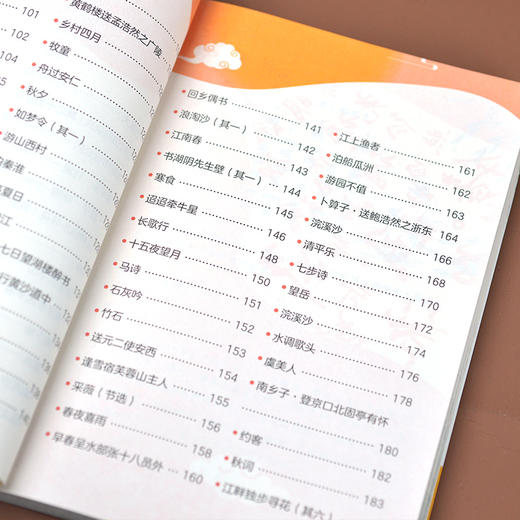 黄鹤楼送孟浩然之广陵
101
乡村四月
102
牧童
103
舟过安仁
104
秋夕
105
如梦令（其一）
游山西村
秦淮
夏日
江
七日望湖楼醉书
行黄沙道中
回乡偶书 141
浪淘沙（其一） 142
江南春 143
书湖阴先生壁（其一） 144
寒食 145
迢迢牵牛星 146
长歌行 148
十五夜望月 150
马诗 151
石灰吟 152
竹石 153
送元二使安西 154
逢雪宿芙蓉山主人 155
采薇（节选） 156
春夜喜雨 158
早春呈水部张十八员外 160
江上渔者 161
泊船瓜洲 162
游园不值 163
卜算子·送鲍浩然之浙东 164
浣溪沙 166
清平乐 168
七步诗 170
望岳 172
浣溪沙 174
水调歌头 176
虞美人 178
南乡子·登京口北固亭有怀 180
约客 182
秋词 183
江畔独步寻花（其六）